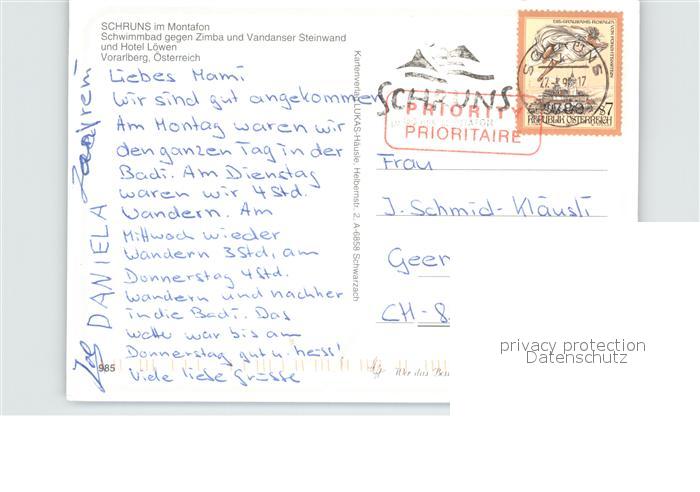 SCHRUNS im Montafon
Schwimmbad gegen Zimba und Vandanser Steinwand
und Hotel Löwen
Vorarlberg, Österreich
Liebes Mami
Wir sind gut angekommen
Am Montag waren wir
den ganzen Tag in der
Badi. Am Dienstag
waren wir 4 Std.
Wandern. Am
Mittwoch wieder
Wandern 3 Std, am
Donnerstag 4 Std.
Wandern und nachher
in die Badi. Das
war bis am
Donnerstag gut u. heiss!
Viele liebe Grüsse
DANIELA
985
Kartenverlag LUKAS-Häusle, Helbernstr. 2, A-6858 Schwarzach
SCHRUNS
PRIORITY
PRIORITAIRE
SCHRUNS
S7
REPUBLIK ÖSTERREICH
Frau
J. Schmid-Kläusli
Geer
CH-8
Wer das
privacy protection
Datenschutz